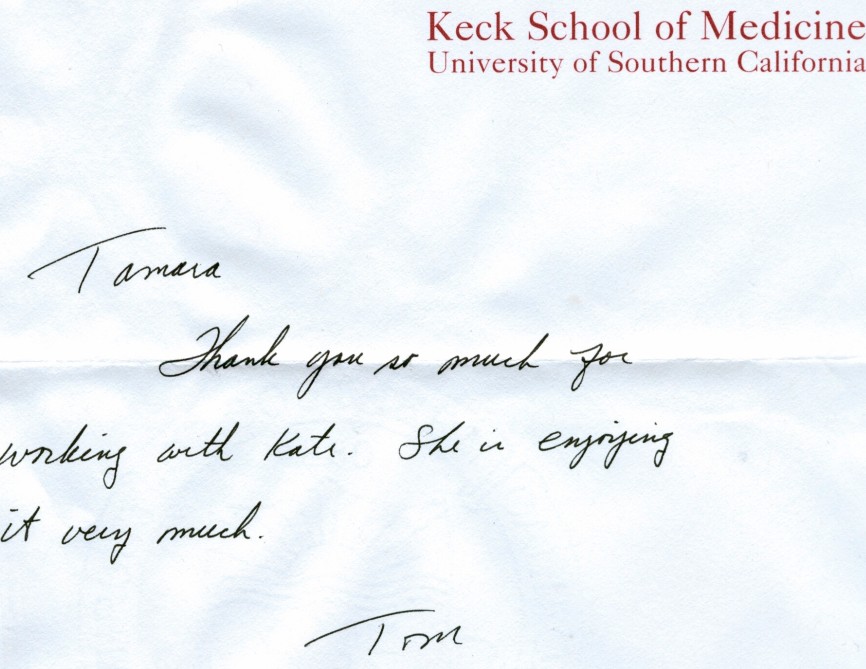 Keck School of Medicine
University of Southern California
Tamara
Thank you so much for
working with Kate. She is enjoying
it very much.
Tom